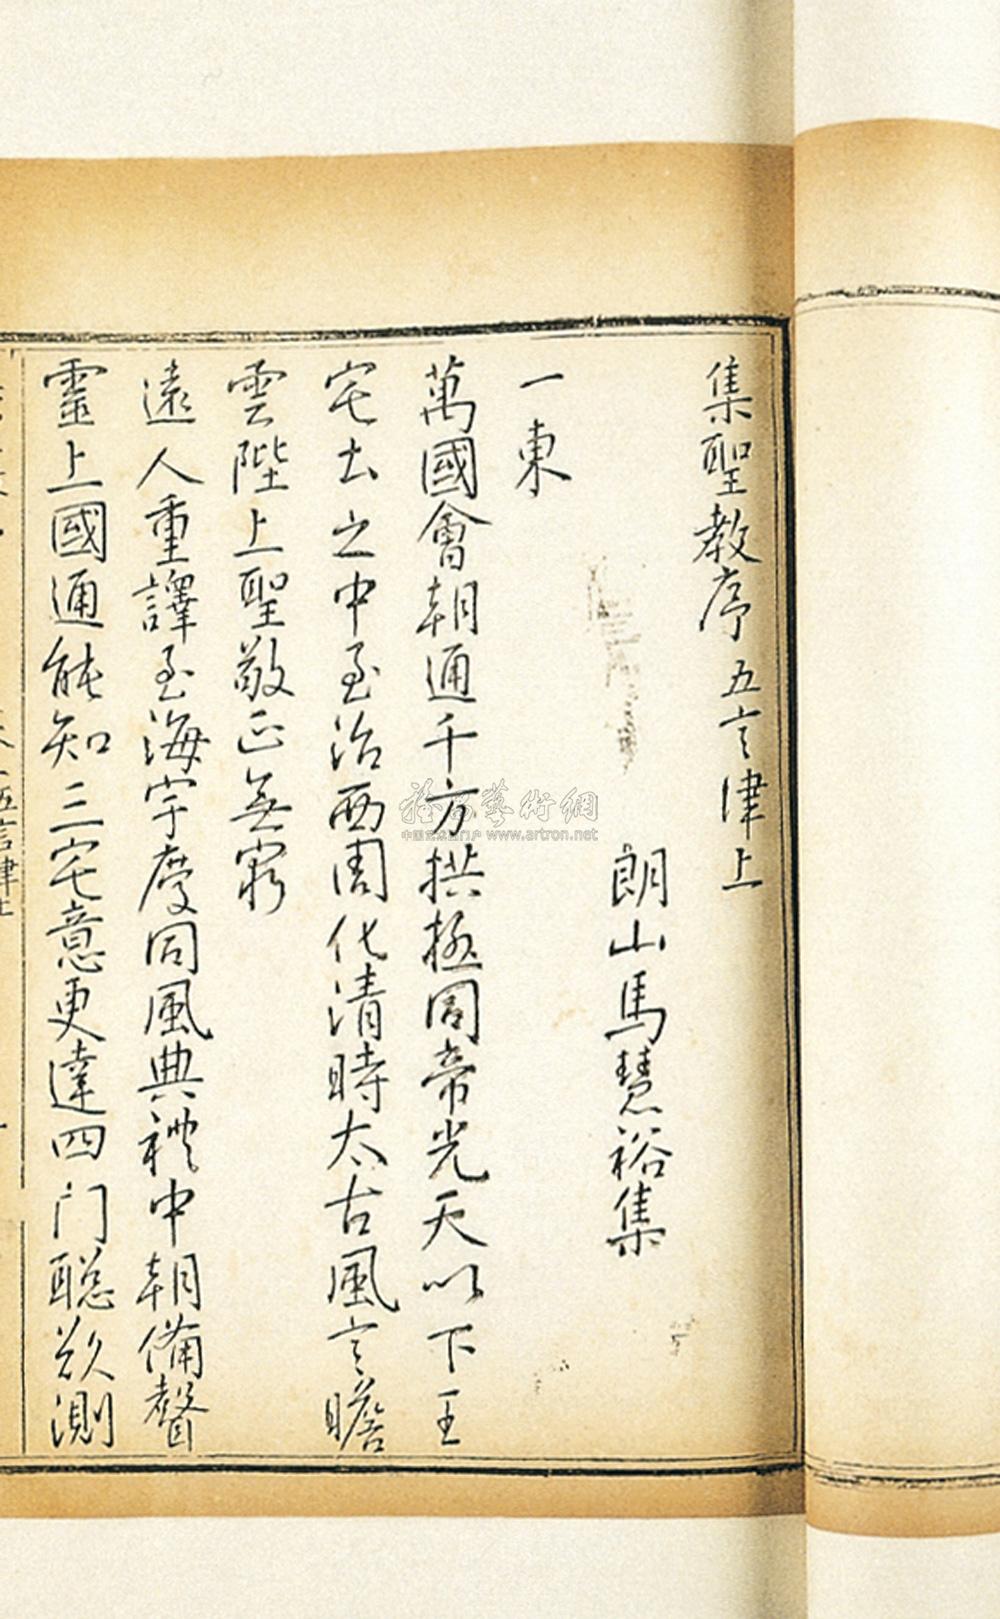 集聖教序 五言律上
朗山馬慧裕集
一東
萬國會朝通千方拱極同帝光天以下王
宅土之中至治西周化清時太古風言瞻
雲陛上聖敬正無窮
遠人重譯至海宇慶同風典禮中朝備聲
靈上國通能知三宅意更達四門聰欲測
五言律上
雅昌藝術網
中国艺术品门户 www.artron.net